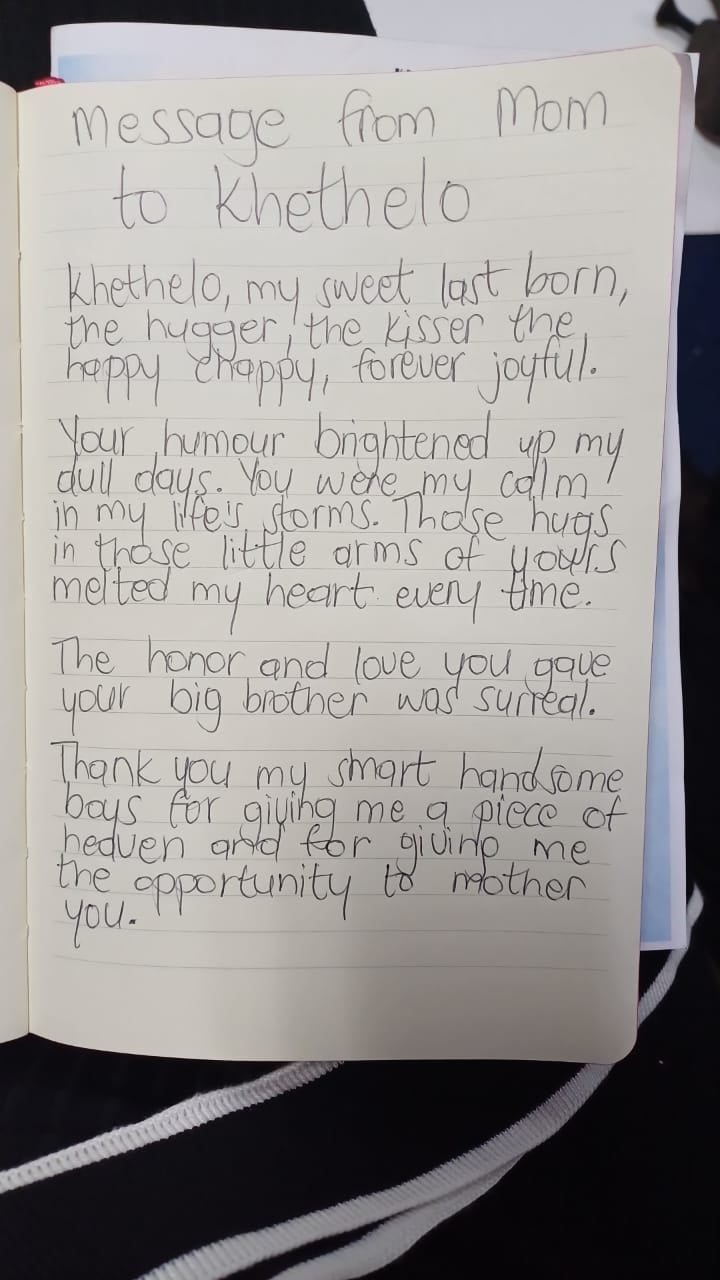 Message from Mom
to Khethelo
Khethelo, my sweet last born,
the hugger, the kisser the
happy chappy, forever joyful.
Your humour brightened up my
dull days. You were my calm
in my life's storms. Those hugs
in those little arms of yours
melted my heart every time.
The honor and love you gave
your big brother was surreal.
Thank you my smart handsome
boys for giving me a piece of
heaven and for giving me
the opportunity to mother
you.